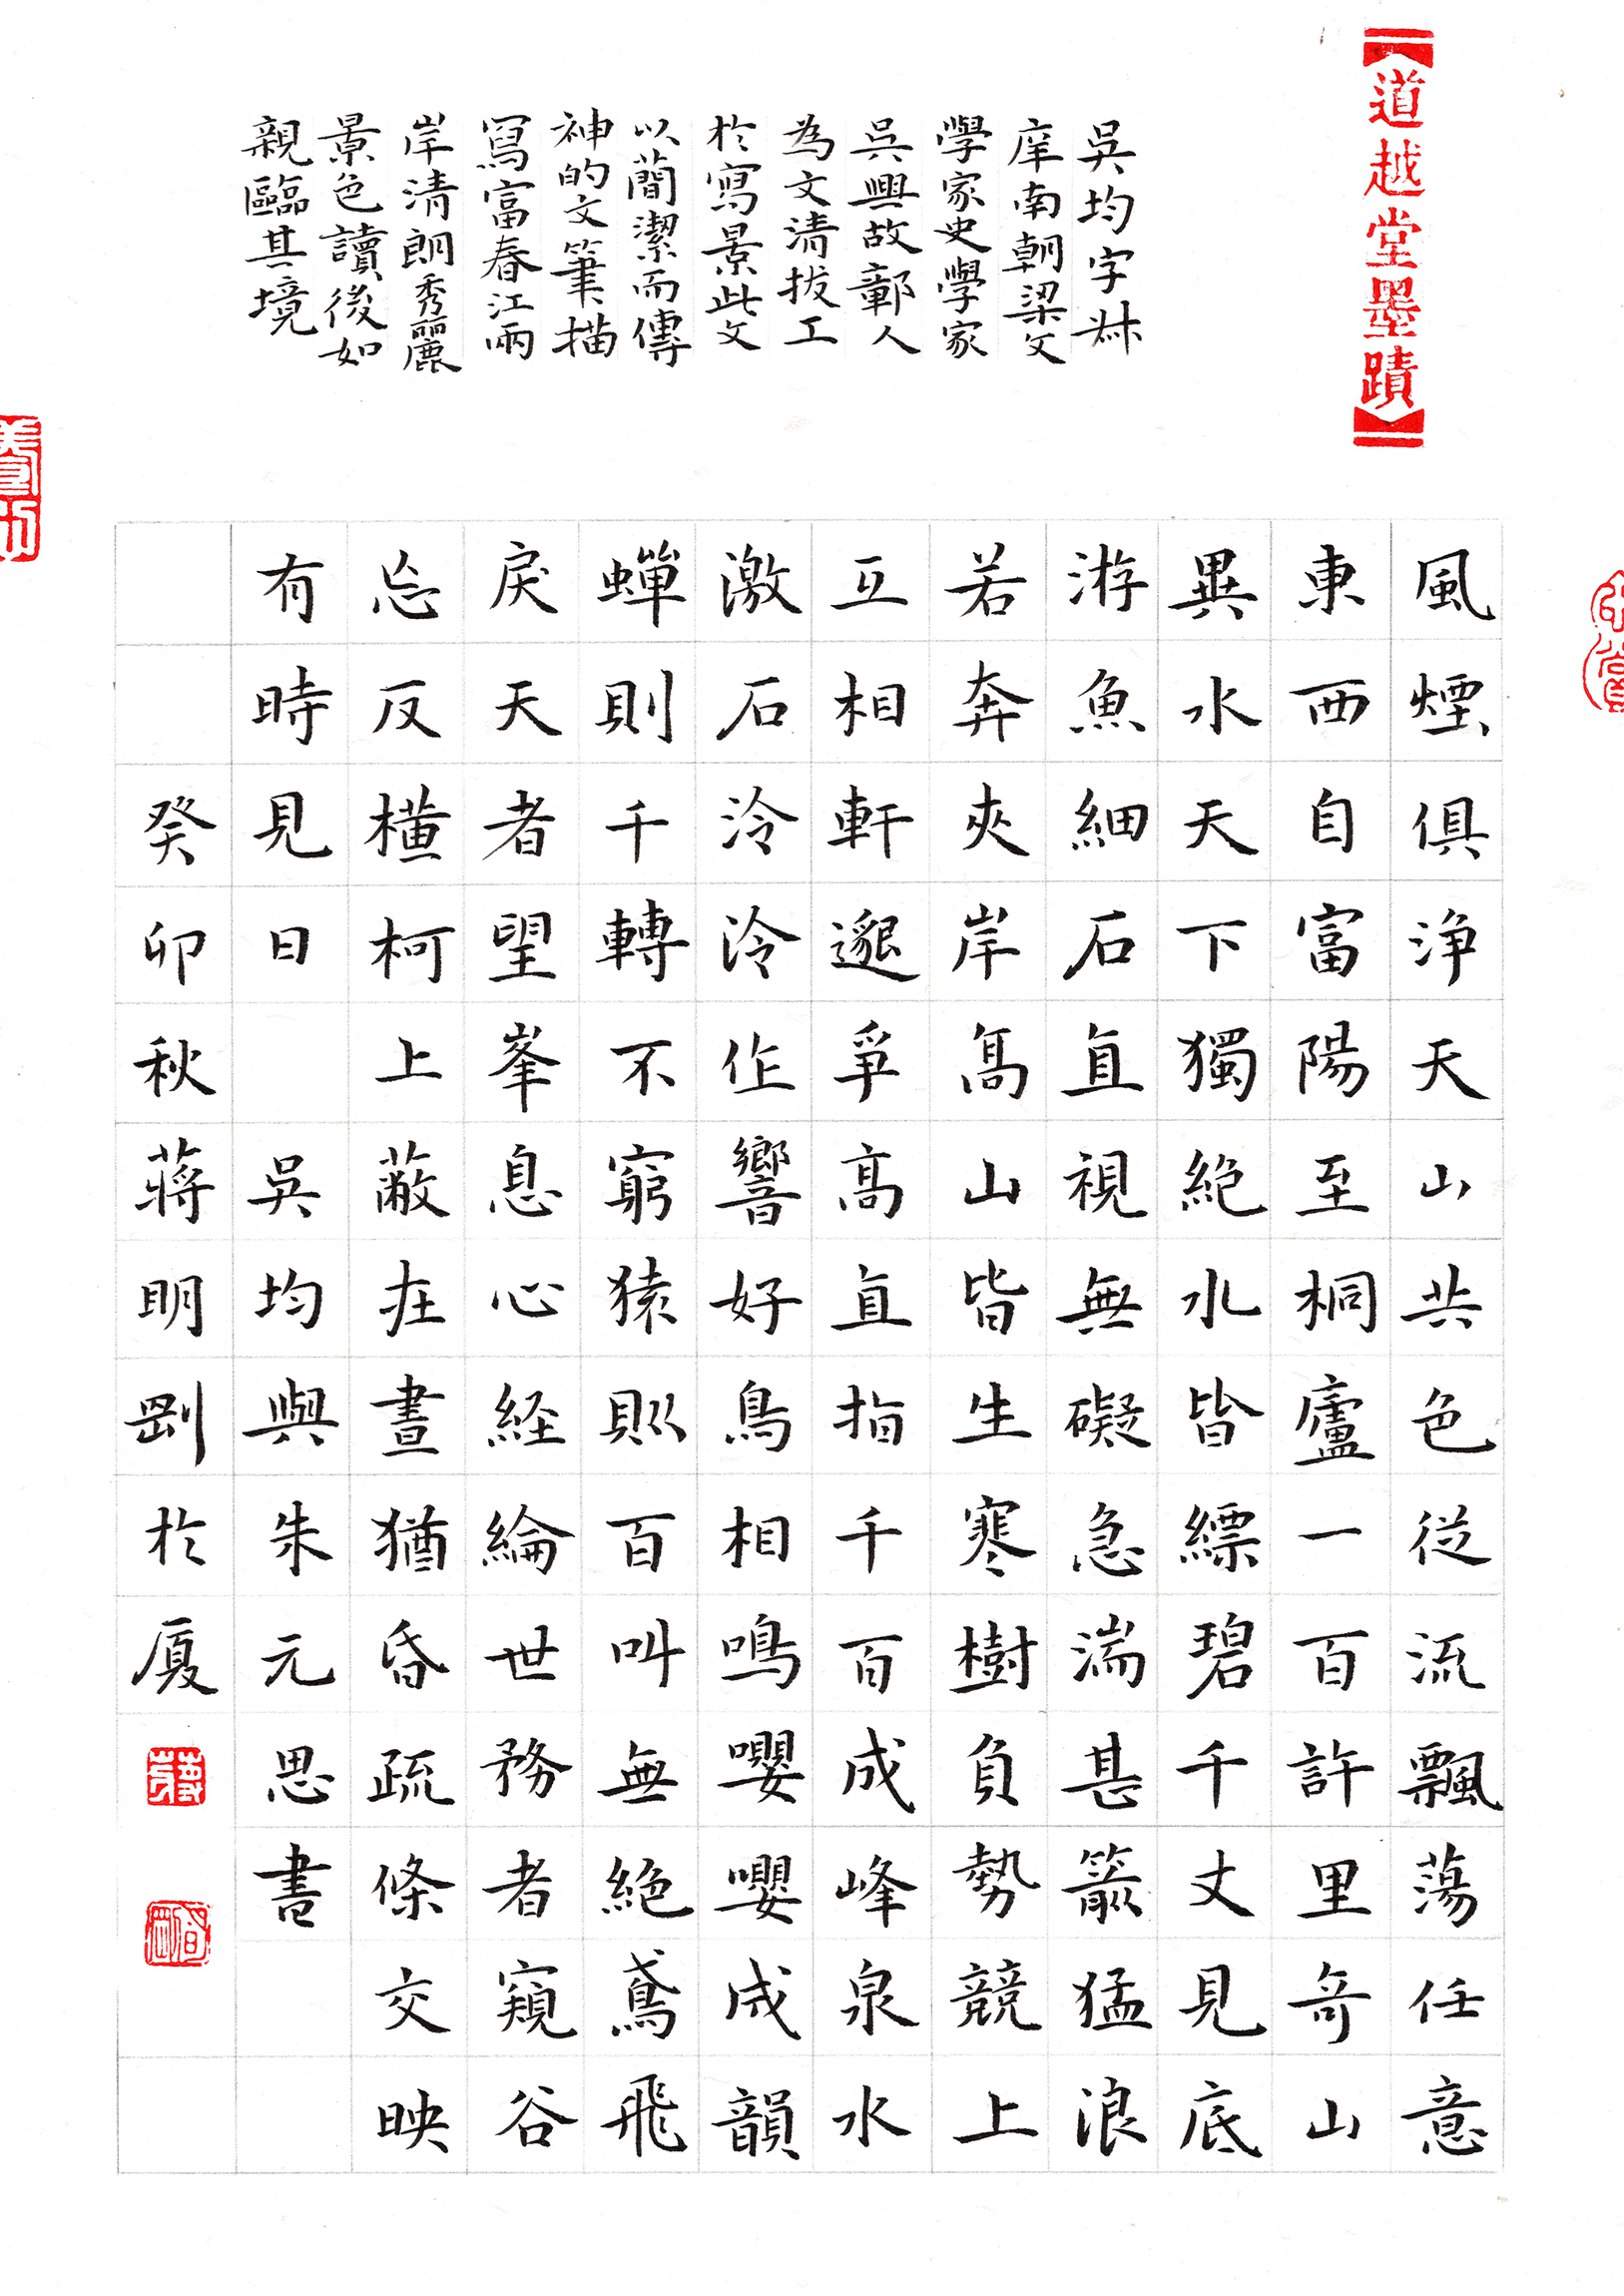 道越堂墨蹟
吳均字叔
庠南朝梁文
學家史學家
吳興故鄣人
為文清拔工
於寫景此文
以簡潔而傳
神的文筆描
寫富春江兩
岸清朗秀麗
景色讀後如
親臨其境
風煙俱淨天山共色從流飄蕩任意
東西自富陽至桐廬一百許里奇山
異水天下獨絕水皆縹碧千丈見底
游魚細石直視無礙急湍甚箭猛浪
若奔夾岸高山皆生寒樹負勢競上
互相軒邈爭高直指千百成峰泉水
激石泠泠作響好鳥相鳴嚶嚶成韻
蟬則千轉不窮猿則百叫無絕鳶飛
戾天者望峯息心經綸世務者窺谷
忘反橫柯上蔽在晝猶昏疏條交映
有時見日 吳均與朱元思書
癸卯秋蔣明剛於廈